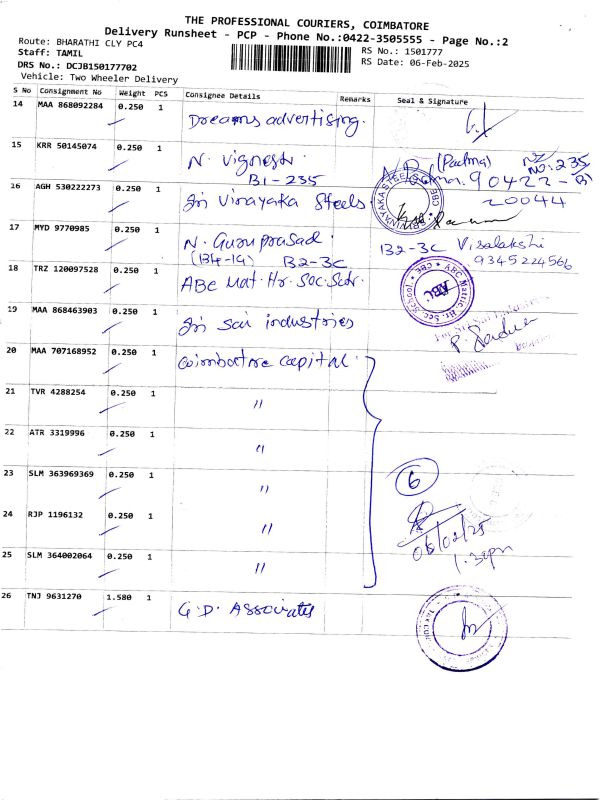 THE PROFESSIONAL COURIERS, COIMBATORE
Delivery Runsheet - PCP - Phone No.:0422-3505555 - Page No.:2
Route: BHARATHI CLY PC4
RS No.: 1501777
Staff: TAMIL
RS Date: 06-Feb-2025
DRS No.: DCJB150177702
Vehicle: Two Wheeler Delivery
S No Consignment No Weight PCS Consignee Details Remarks Seal & Signature
14 MAA 868092284 0.250 1 Dreams advertising.
15 KRR 50145074 0.250 1 N. Vignesh (Padma) NO.235
B1-235 90422-
20044
16 AGH 530222273 0.250 1 Sri Vinayaka Steels
17 MYD 9770985 0.250 1 N. Guru prasad. B2-3C Visalakshi
(B4-14) B2-3C 9345224566
18 TRZ 120097528 0.250 1 ABC Mat. Hr. Sec. Sch.
ABC
19 MAA 868463903 0.250 1 Sri Sai industries
20 MAA 707168952 0.250 1 Coimbatore capital.
21 TVR 4288254 0.250 1 "
22 ATR 3319996 0.250 1 "
23 SLM 363969369 0.250 1 " 6
24 RJP 1196132 0.250 1 "
06/02/25
25 SLM 364002064 0.250 1 " 1.30pm
26 TNJ 9631270 1.580 1 G.D. Associates